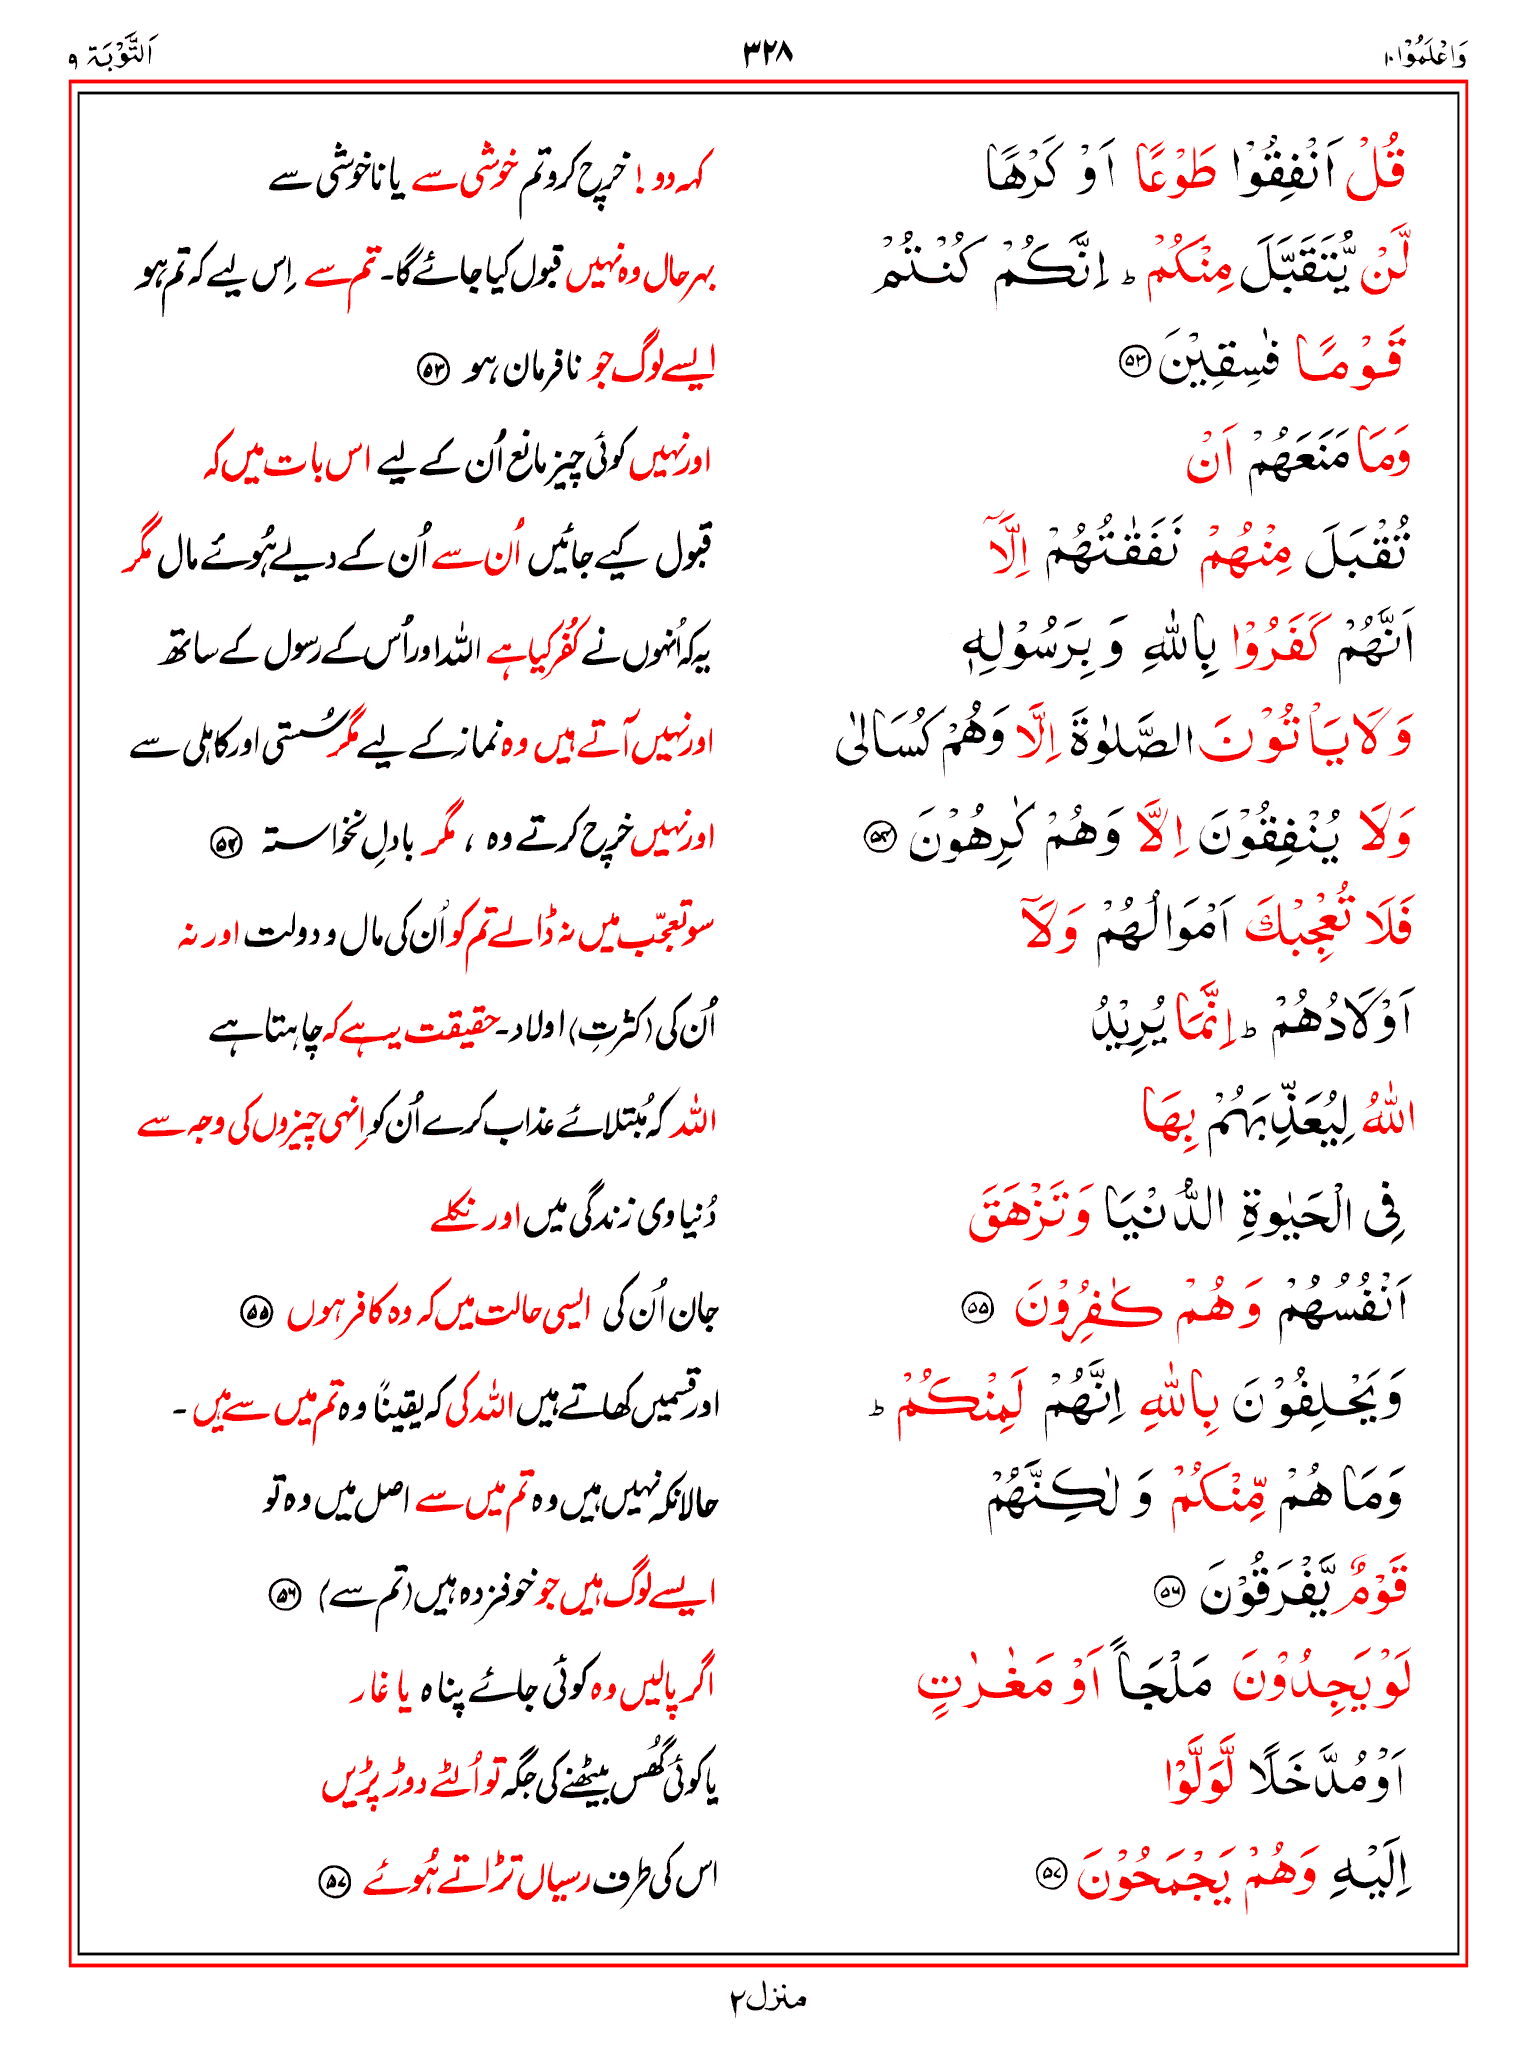 وَاعْلَمُوْا ۱۰ ۳۲۸ اَلتَّوْبَة ۹
قُلْ اَنْفِقُوْا طَوْعًا اَوْ كَرْهًا کہہ دو! خرچ کرو تم خوشی سے یا ناخوشی سے
لَّنْ يُّتَقَبَّلَ مِنْكُمْ ؕ اِنَّكُمْ كُنْتُمْ بہرحال وہ نہیں قبول کیا جائے گا۔ تم سے اِس لیے کہ تم ہو
قَوْمًا فٰسِقِيْنَ ۵۳ ایسے لوگ جو نافرمان ہو ۵۳
وَمَا مَنَعَهُمْ اَنْ اور نہیں کوئی چیز مانع اُن کے لیے اس بات میں کہ
تُقْبَلَ مِنْهُمْ نَفَقٰتُهُمْ اِلَّاۤ قبول کیے جائیں اُن سے اُن کے دیے ہُوئے مال مگر
اَنَّهُمْ كَفَرُوْا بِاللّٰهِ وَ بِرَسُوْلِهٖ یہ کہ اُنہوں نے کُفر کیا ہے اللہ اور اُس کے رسول کے ساتھ
وَلَا يَاْتُوْنَ الصَّلٰوةَ اِلَّا وَهُمْ كُسَالٰى اور نہیں آتے ہیں وہ نماز کے لیے مگر سُستی اور کاہلی سے
وَلَا يُنْفِقُوْنَ اِلَّا وَهُمْ كٰرِهُوْنَ ۵۴ اور نہیں خرچ کرتے وہ ، مگر بادلِ نخواستہ ۵۴
فَلَا تُعْجِبْكَ اَمْوَالُهُمْ وَلَاۤ سو تعجّب میں نہ ڈالے تم کو اُن کی مال و دولت اور نہ
اَوْلَادُهُمْ ؕ اِنَّمَا يُرِيْدُ اُن کی (کثرتِ) اولاد۔ حقیقت یہ ہے کہ چاہتا ہے
اللّٰهُ لِيُعَذِّبَهُمْ بِهَا اللہ کہ مُبتلائے عذاب کرے اُن کو اِنہی چیزوں کی وجہ سے
فِى الْحَيٰوةِ الدُّنْيَا وَتَزْهَقَ دُنیاوی زندگی میں اور نکلے
اَنْفُسُهُمْ وَهُمْ كٰفِرُوْنَ ۵۵ جان اُن کی ایسی حالت میں کہ وہ کافر ہوں ۵۵
وَيَحْلِفُوْنَ بِاللّٰهِ اِنَّهُمْ لَمِنْكُمْ ؕ اور قسمیں کھاتے ہیں اللہ کی کہ یقینًا وہ تم میں سے ہیں -
وَمَا هُمْ مِّنْكُمْ وَ لٰكِنَّهُمْ حالانکہ نہیں ہیں وہ تم میں سے اصل میں وہ تو
قَوْمٌ يَّفْرَقُوْنَ ۵۶ ایسے لوگ ہیں جو خوفزدہ ہیں (تم سے) ۵۶
لَوْ يَجِدُوْنَ مَلْجَاً اَوْ مَغٰرٰتٍ اگر پالیں وہ کوئی جائے پناہ یا غار
اَوْ مُدَّخَلًا لَّوَلَّوْا یا کوئی گُھس بیٹھنے کی جگہ تو اُلٹے دوڑ پڑیں
اِلَيْهِ وَهُمْ يَجْمَحُوْنَ ۵۷ اس کی طرف رسیاں تڑاتے ہُوئے ۵۷
منزل ۲